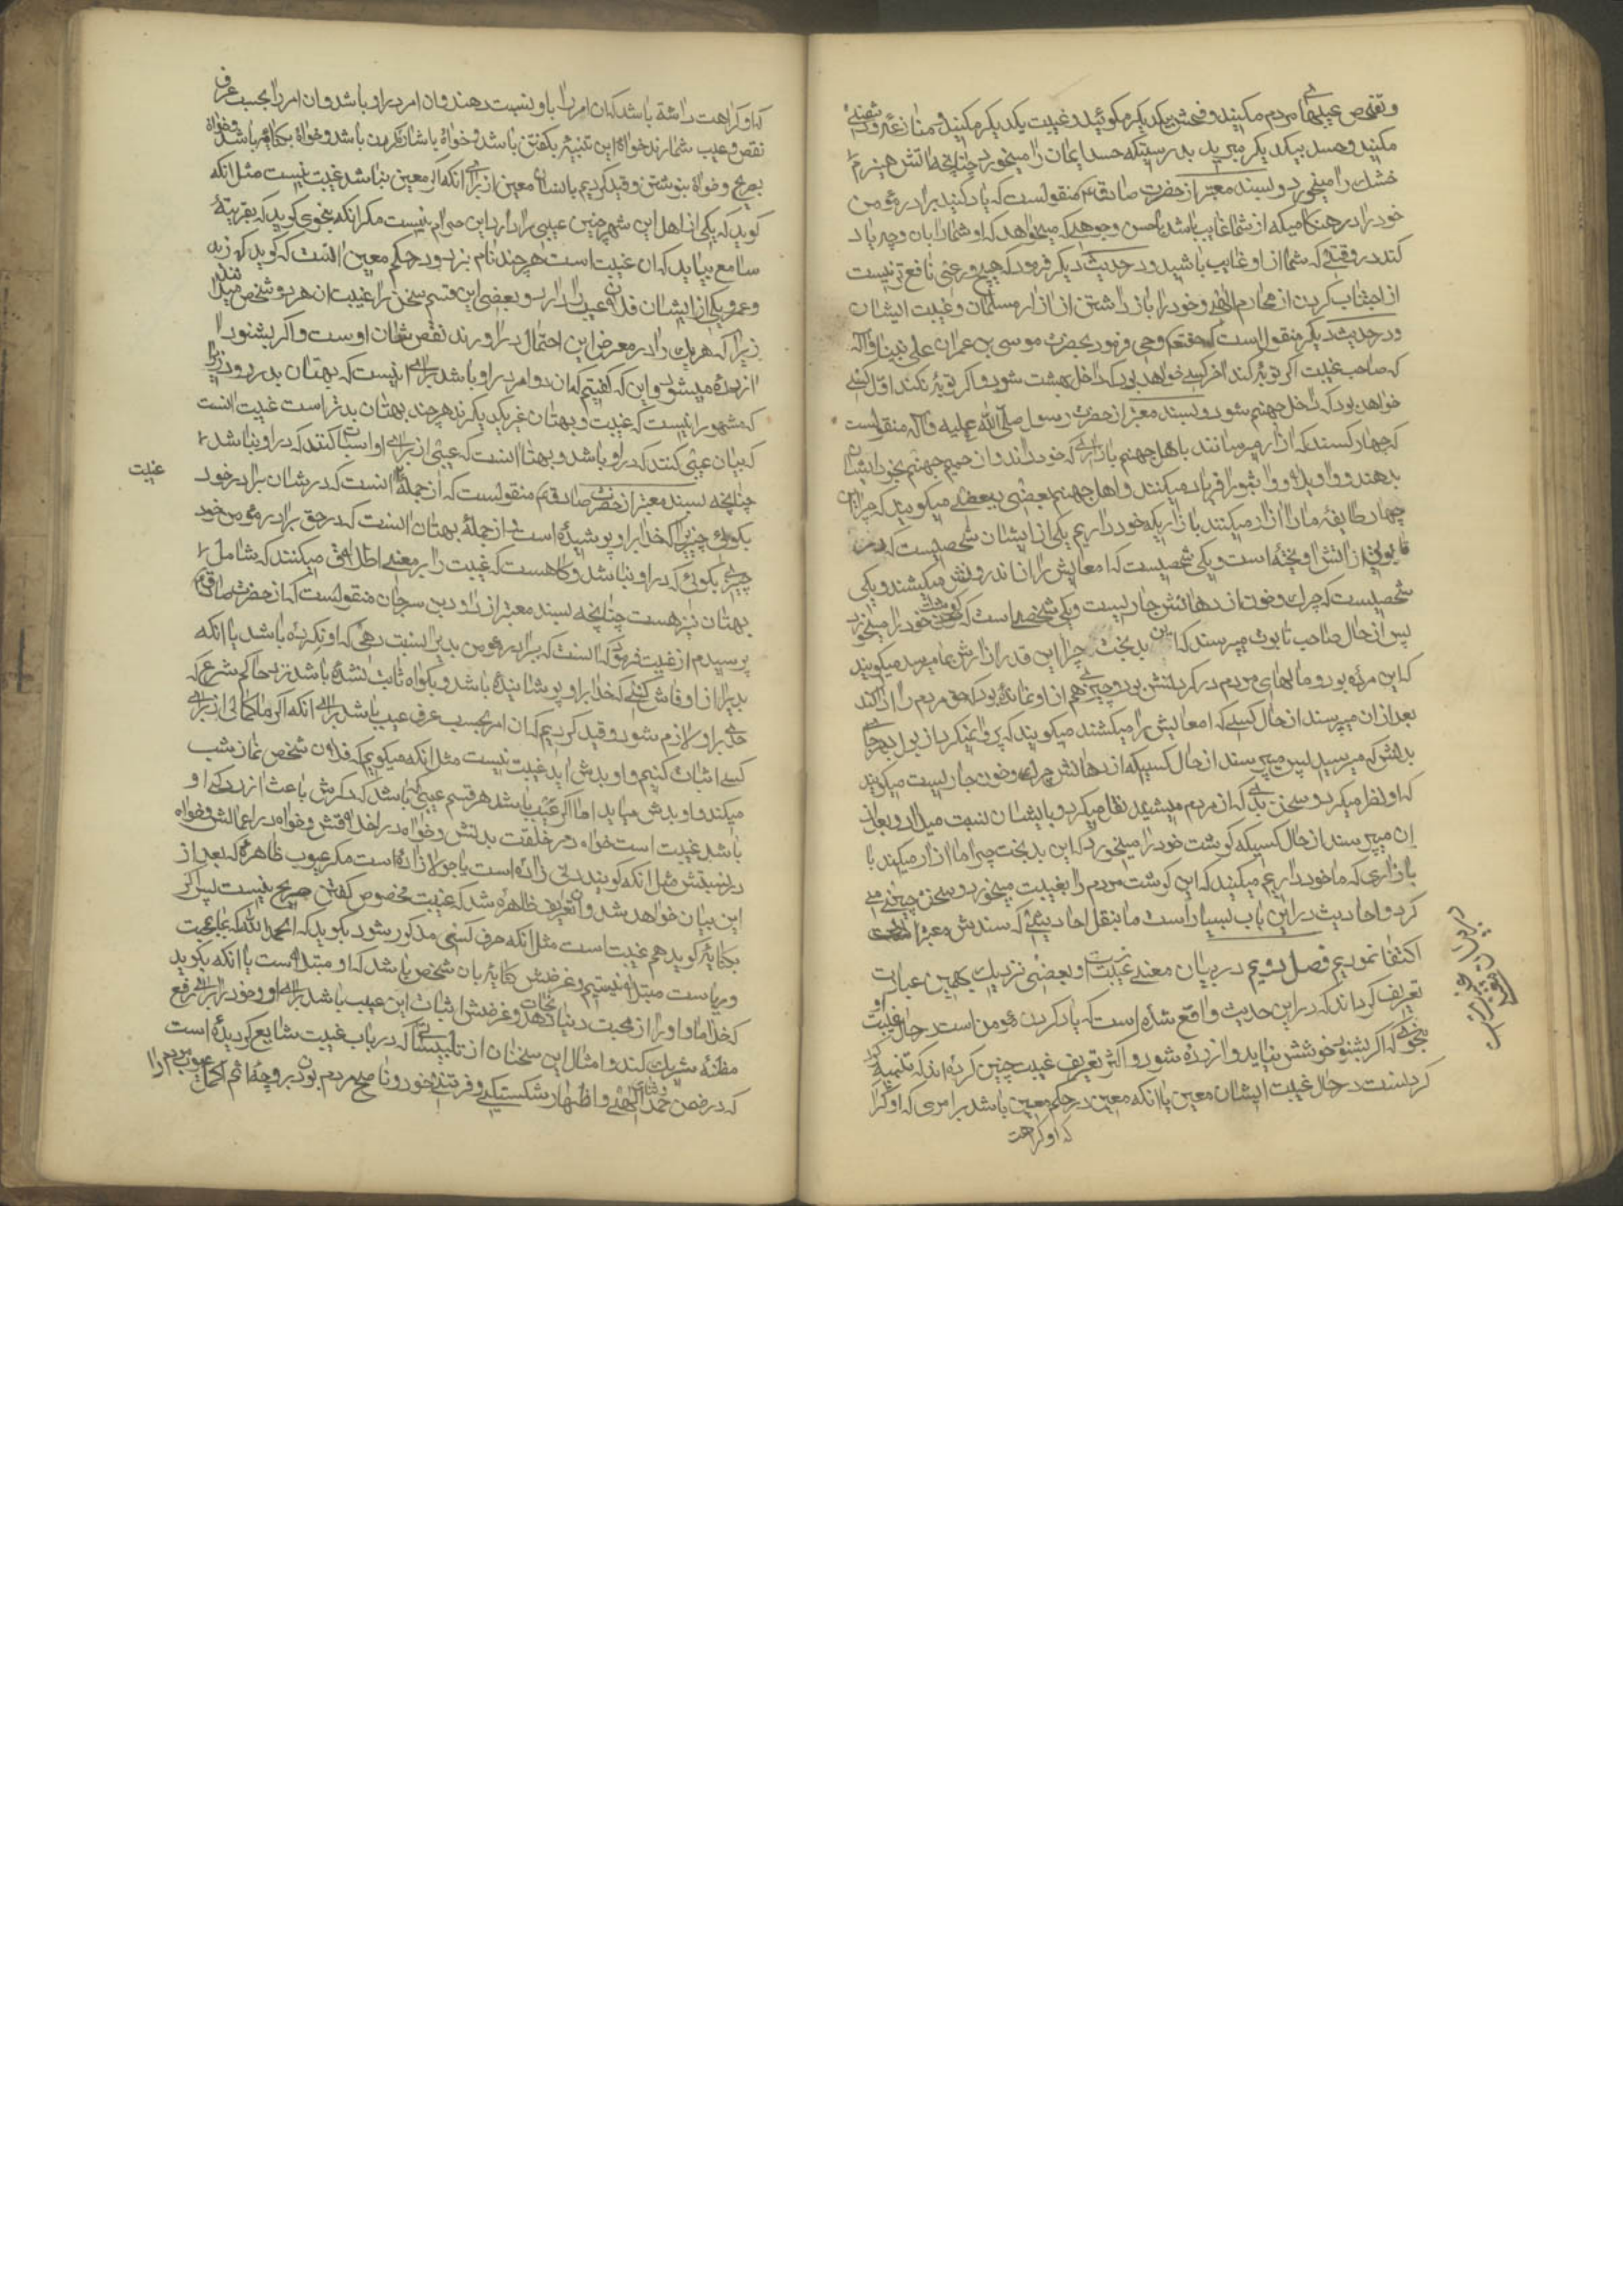 و تفحص عیبهای مردم مکنید و فحش بیکدیکر مکوئید و غیبت یکدیکر مکنید و منازعه و دشمنی
مکنید و حسد بیکدیکر مبرید بدرستیکه حسد ایمان را میخورد چنانچه اتش هیزم
خشک را میخورد و بسند معتبر از حضرت صادق ع منقولست که یاد کنید برادر مؤمن
خود را در هنکامیکه از شما غایب باشد باحسن وجوهی که میخواهد که او شما را بان وجه یاد
کند در وقتی که شما از او غایب باشید و در حدیث دیکر فرمود که هیچ ورعی نافع تر نیست
از اجتناب کردن از محارم الهی و خود را باز داشتن از ازار مسلمانان و غیبت ایشان
و در حدیث دیکر منقولست که حقتعم وحی فرمود بحضرت موسی بن عمران علی نبینا و اله
که صاحب غیبت اکر توبه کند اخر کسی خواهد بود که داخل بهشت شود و اکر توبه نکند اول کسی
خواهد بود که داخل جهنم شود و بسند معتبر از حضرت رسول صلی الله علیه و اله منقولست
که چهار کسند که ازار میرسانند باهل جهنم با ازاری که خود دارند و از حمیم جهنم بخورد ایشان
بدهند و واویلاه و واثبورا فریاد میکنند و اهل جهنم بعضی ببعضی میکویند که چرا این
چهار طایفه ما را ازار میکنند با ازاریکه خود داریم یکی از ایشان شخصیست که در
تابوتی از اتش اویخته است و یکی شخصیست که امعایش را از اندرونش میکشند و یکی
شخصیست که چرک و خون از دهانش جاریست و یکی شخصی است که کوشت خود را میخورد
پس از حال صاحب تابوت میپرسند که این بدبخت چرا این قدر ازارش بما میرسد میکویند
که این مرده بود و مالهای مردم در کردنش بود و چیزی هم از او نمانده بود که حق مردم را ادا کنند
بعد از ان میپرسند از حال کسی که امعایش را میکشند میکویند که پروا نمیکرد از بول بهر جای
بدنش که میرسید پس میپرسند از حال کسیکه از دهانش چرک و خون جاریست میکویند
که او نظر میکرد و سخن بدی که از مردم میشنید نقل میکرد و بایشان نسبت میداد و بعد از
ان میپرسند از حال کسیکه کوشت خود را میخورد که این بدبخت چرا ما را ازار میکند با
با ازاری که ما خود داریم میکنند که این کوشت مردم را بغیبت میخورد و سخن چینی می
کرد و احادیث در این باب بسیار است ما بنقل احادیثی که سندش معتبر است
اکتفا نمودیم فصل دویم در بیان معنی غیبت است و بعضی نزدیک بهمین عبارت
تعریف کرده اند که در این حدیث واقع شده است که یاد کردن مؤمن است در حال غیبت او
بنحوی که اکر بشنود خوشش نیاید و ازرده شود و اکثر تعریف غیبت چنین کرده اند که تنبیه
کردنست در حال غیبت ایشان معین یا انکه معین در حکم معین باشد بر امری که او کرا
که او کراهت
در تعریف غیبت
که او کراهت داشته باشد که ان امر را باو نسبت دهند و ان امر در او باشد و ان امر را بحسب عرف
نقص و عیب شمارند خواه این تنبیه بکفتن باشد و خواه باشاره کردن باشد و خواه بکنایه باشد و خواه
بصریح و خواه بنوشتن و قید کردیم بانسان معین از برای انکه اکر معین نباشد غیبت نیست مثل انکه
کوید که یکی از اهل این شهر چنین عیبی را دارد این حرام نیست مکر انکه بنحوی کوید که بقرینهٔ
سامع بیابد که ان غیبت است هرچند نام نبرد و در حکم معین انست که کوید که زید
و عمرو یکی از ایشان فلان عیب را دارد و بعضی این قسم سخن را غیبت ان هر دو شخص میدانند
زیرا که هر یک را در معرض این احتمال در اوردند نقص شان اوست و اکر بشنود
ازرده میشود و این که کفتیم که ان امر در او باشد برای انیست که بهتان بدر رود زیرا
که مشهور انیست که غیبت و بهتان غیر یکدیکرند هرچند بهتان بدتر است غیبت انست
که بیان عیبی کنند که در او باشد و بهتان انست که عیبی از برای او اثبات کنند که در او نباشد
چنانچه بسند معتبر از حضرت صادق ع منقولست که از جملهٔ غیبت انست که در شان برادر خود
بکوئی چیزیرا که خدا بر او پوشیده است و از جملهٔ بهتان انست که در حق برادر مؤمن خود
چیزی بکوئی که در او نباشد و کاهست که غیبت را بر معنی اطلاق میکنند که شامل
بهتان نیز هست چنانچه بسند معتبر از داود بن سرحان منقولست که از حضرت صادق ع
پرسیدم از غیبت فرمود که انست که برادر مؤمن بدیرا نسبت دهی که او نکرده باشد یا انکه
بدیرا از او فاش کنی که خدا بر او پوشانیده باشد و بکواه ثابت نشده باشد نزد حاکم شرع که
حدی بر او لازم شود و قید کردیم که ان امر بحسب عرف عیب باشد برای انکه اکر ما کمالی از برای
کسی اثبات کنیم و او بدش اید غیبت نیست مثل انکه میکویم که فلان شخص نماز شب
میکند و او بدش میاید اما اکر عیب باشد هر قسم عیبی که باشد که ذکرش باعث ازردکی او
باشد غیبت است خواه در خلقت بدنش و خواه در اخلاقش و خواه در اعمالش و خواه
در نسبتش مثل انکه کویند دنی زاده است یا جولا زاده است مکر عیوب ظاهره که بعد از
این بیان خواهد شد و از تعریف ظاهره شد که غیبت مخصوص کفتن صریح نیست پس اکر
بکنایه کوید هم غیبت است مثل انکه حرف کسی مذکور شود بکوید که الحمد لله که ما بمحبت
و ریاست مبتلا نیستیم و غرضش کنایه بان شخص باشد که او مبتلا است یا انکه بکوید
که خدا ما و او را از محبت دنیا نجات دهد و غرضش اثبات این عیب باشد برای او و خود را برای رفع
مظنه شریک کند و امثال این سخنان از تلبیساتی که در باب غیبت شایع کردیده است
که در ضمن حمد و ثنای الهی و اظهار شکستکی و فروتنی خود و ناصح مردم بودن بر وجه اتم اکمل عیوب مردم را